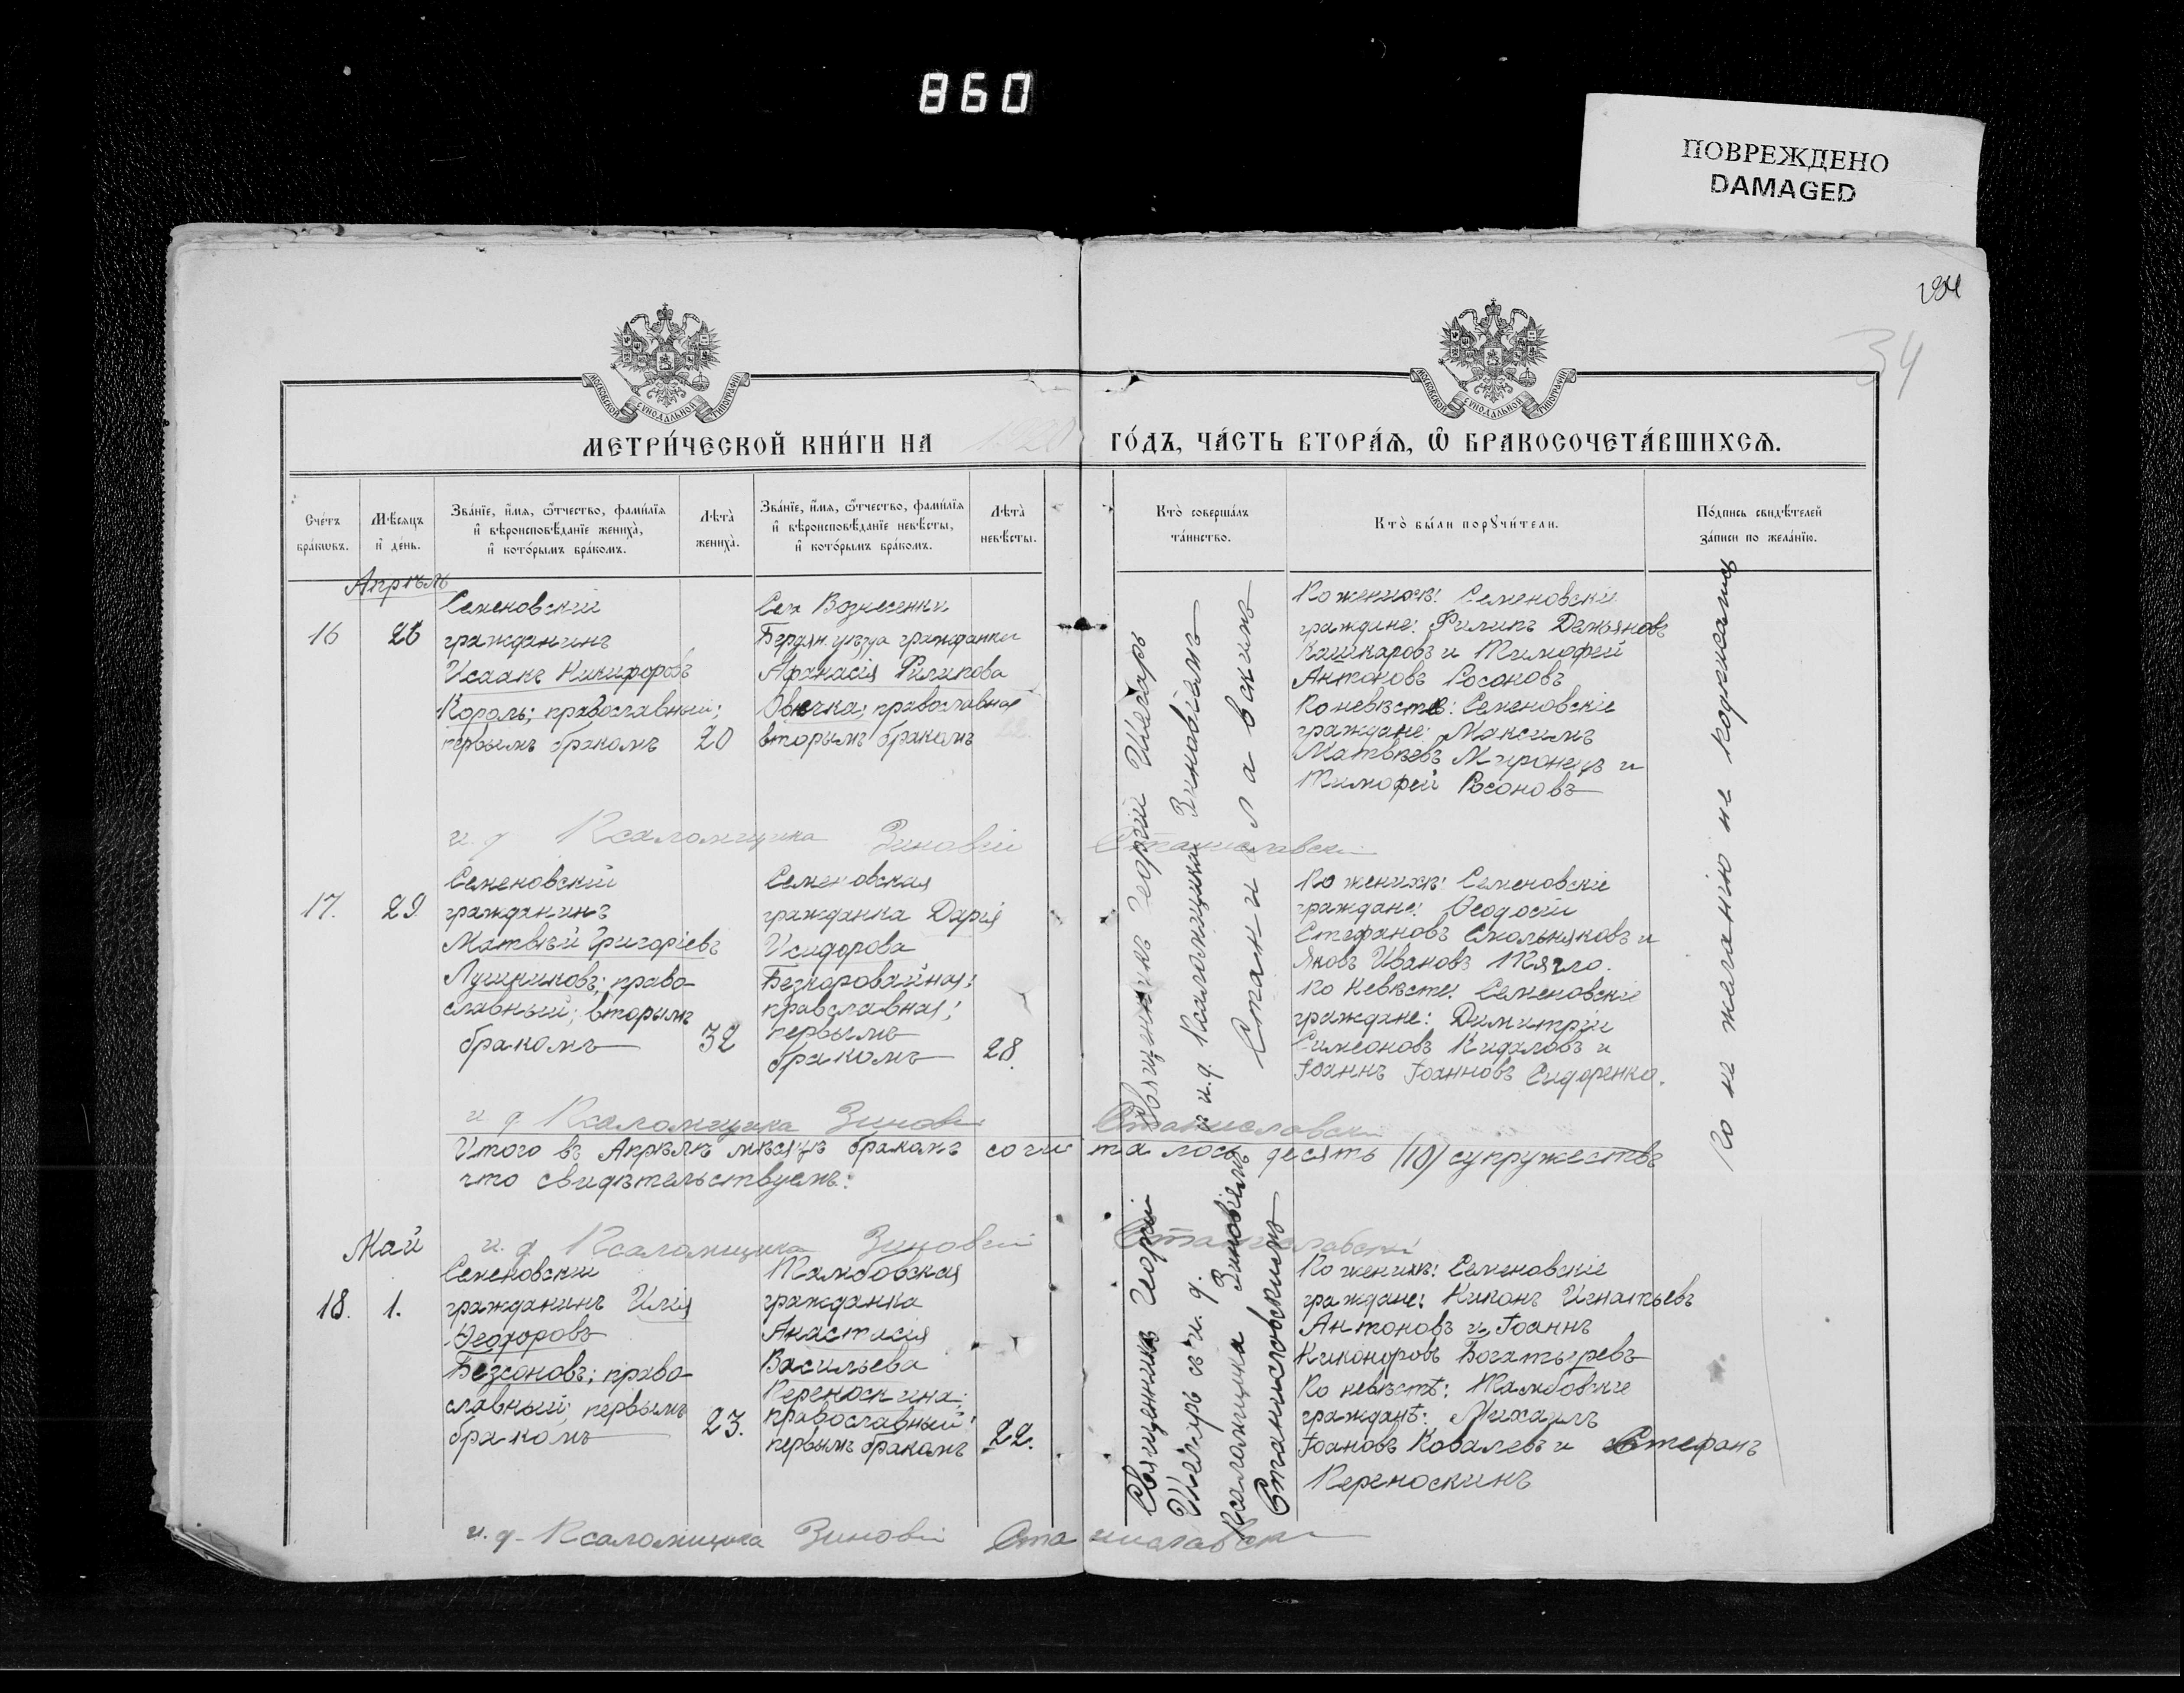 860
ПОВРЕЖДЕНО
DAMAGED
34
МОСКОВСКОЙ СѴНОДАЛЬНОЙ ТИПОГРАФІИ
МОСКОВСКОЙ СѴНОДАЛЬНОЙ ТИПОГРАФІИ
МЕТРИ́ЧЕСКОЙ КНИ́ГИ НА 1920 ГО́ДЪ, ЧА́СТЬ ВТОРА́Ѧ, Ѽ БРАКОСОЧЕТА́ВШИХСѦ.
Сче́тъ
бра́ковъ.
Мѣ́сяцъ
и҆ де́нь.
Зва́нїе, и҆́мѧ, ѻ҆́тчество, фами́лїѧ
и҆ вѣроисповѣ́данїе жениха̀,
и҆ кото́рымъ бра́комъ.
Лѣ́та
жениха̀.
Зва́нїе, и҆́мѧ, ѻ҆́тчество, фами́лїѧ
и҆ вѣроисповѣ́данїе невѣ́сты,
и҆ кото́рымъ бра́комъ.
Лѣ́та
невѣ́сты.
Кто̀ соверша́лъ
та́инство.
Кто̀ бы́ли порꙋчи́тели.
По́дпись свидѣ́телей
за́писи по жела́нїю.
Апрѣль
16
26
Семеновскій
гражданинъ
Исаакъ Никифоровъ
Король; православный;
первымъ бракомъ
20
Сел Вознесенки
Бердян. уѣзда гражданка
Афанасія Филипова
Овечка; православная
вторымъ бракомъ
Ко женихѣ: Семеновскіе
граждане: Филипъ Демьяновъ
Кашкаровъ и Тимофей
Антоновъ Росоновъ
Ко невѣстѣ: Семеновскіе
граждане: Максимъ
Матвѣевъ Миронецъ и
Тимофей Росоновъ
и. д. Псаломщика Зиновій Станиславскій
17.
29.
Семеновскій
гражданинъ
Матвѣй Григоріевъ
Лушниковъ; право-
славный; вторымъ
бракомъ
32
Семеновская
гражданка Дарія
Исидорова
Безкоровайная;
православная;
первымъ
бракомъ
28.
Священникъ Георгій
съ и. д. Псаломщика Зиновіемъ
Станиславскимъ
По женихѣ: Семеновскіе
граждане: Ѳеодосій
Стефановъ Смольняковъ и
Яковъ Ивановъ Тягло.
По невѣсте: Семеновскіе
граждане: Димитрій
Симеоновъ Кидаловъ и
Іоаннъ Іоанновъ Сидоренко.
По не желанію не подписались
и. д. Псаломщика Зиновій Станиславскій
Итого въ Апрѣлѣ мѣсяцѣ бракомъ сочиталось десять (10) супружествъ
что свидѣтельствуемъ:
и. д. Псаломщика Зиновій Станиславскій
Май
18.
1.
Семеновскій
гражданинъ Илія
Ѳеодоровъ
Безсоновъ; право-
славный; первымъ
бракомъ
23.
Тамбовская
гражданка
Анастасія
Васильева
Переноскина;
православный;
первымъ бракомъ
22.
Священникъ Георгій
съ и. д.
Псаломщика Зиновіемъ
Станиславскимъ
По женихѣ: Семеновскіе
граждане: Никонъ Игнатьевъ
Антоновъ и Іоаннъ
Никоноровъ Богатыревъ
По невѣстѣ: Тамбовскіе
гражданѣ: Михаилъ
Іоановъ Ковалевъ и Стефанъ
Переноскинъ
и. д. Псаломщика Зиновій Станиславскій